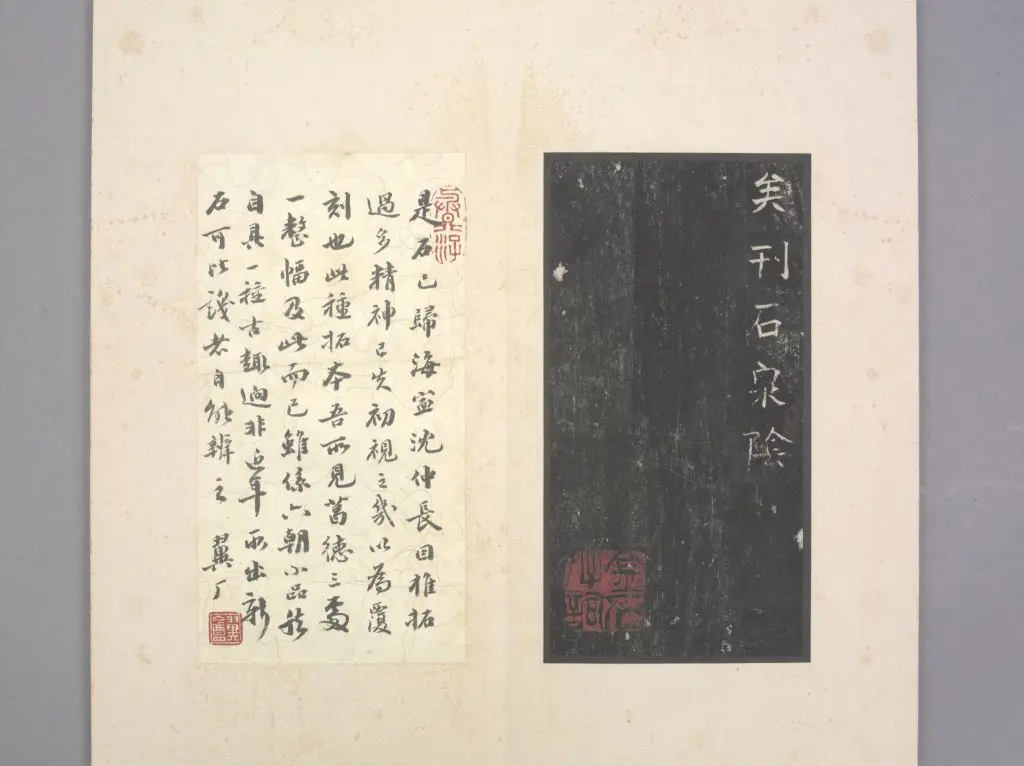 矣刊石泉陰
是石已歸海寍沈仲長因椎拓
過多精神已失初視之幾以為覆
刻也此種拓本吾所見舊德三
一整幅及此而已雖係六朝小品然
自具一種古趣迥非近年所出新
石可比識者自能辨之 翼厂
翼盦